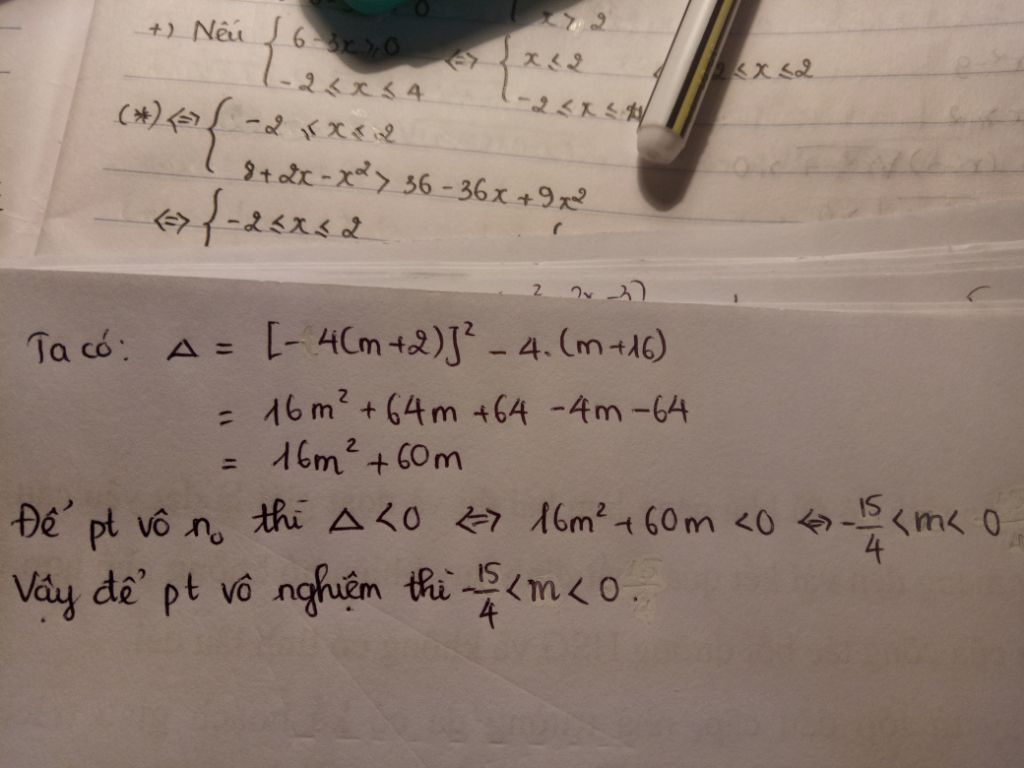 x > 2
+) Nếu { 6 - 3x ≥ 0 ⇔ { x ≤ 2 2 ≤ x ≤ 2
-2 ≤ x ≤ 4 -2 ≤ x ≤
(*) ⇔ { -2 ≤ x ≤ 2
8 + 2x - x² > 36 - 36x + 9x²
⇔ { -2 ≤ x ≤ 2
Ta có: Δ = [- 4(m+2)]² - 4. (m+16)
= 16m² + 64m + 64 - 4m - 64
= 16m² + 60m
Để pt vô n₀ thì Δ < 0 ⇔ 16m² + 60m < 0 ⇔ -15/4 < m < 0
Vậy để pt vô nghiệm thì -15/4 < m < 0.